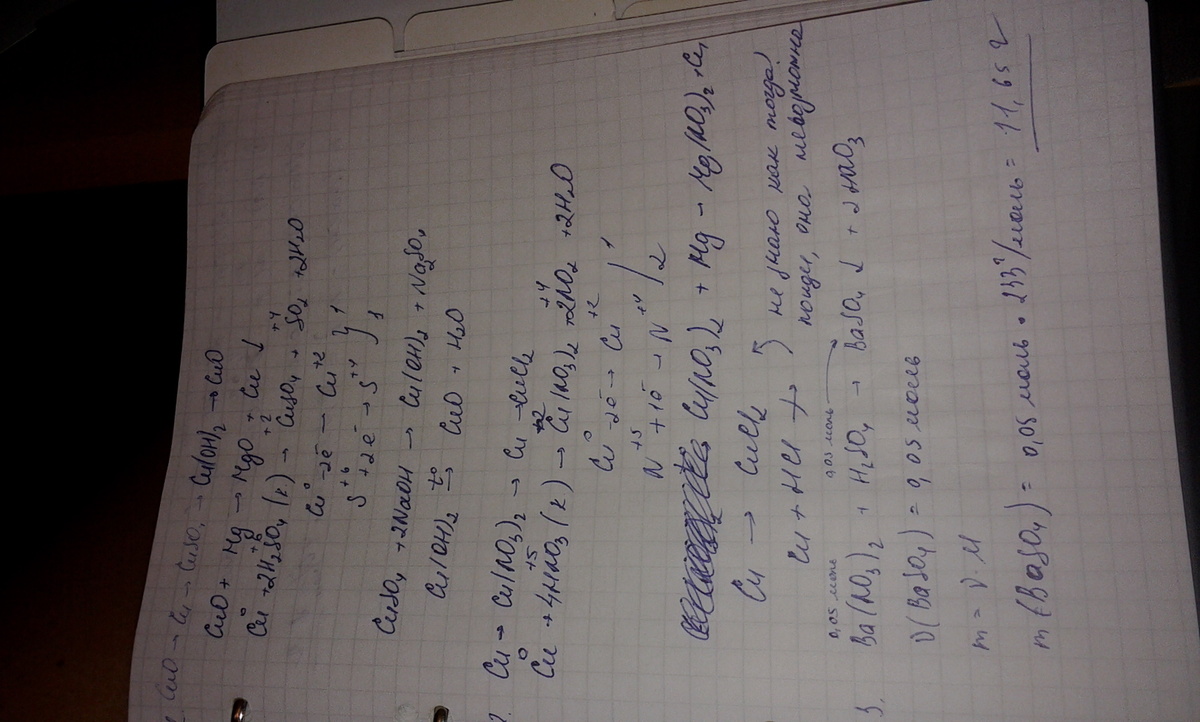 CuO → Cu → CuSO₄ → Cu(OH)₂ → CuO
CuO + Mg → MgO + Cu ↓
Cu⁰ + 2H₂S⁺⁶O₄ (к) → Cu⁺²SO₄ + S⁺⁴O₂ + 2H₂O
Cu⁰ - 2e⁻ → Cu⁺² } 1
S⁺⁶ + 2e⁻ → S⁺⁴ } 1
CuSO₄ + 2NaOH → Cu(OH)₂ + Na₂SO₄
Cu(OH)₂ t° → CuO + H₂O
2. Cu → Cu(NO₃)₂ → Cu → CuCl₂
Cu⁰ + 4HN⁺⁵O₃ (к) → Cu⁺²(NO₃)₂ + 2N⁺⁴O₂ + 2H₂O
Cu⁰ - 2e⁻ → Cu⁺² | 1
N⁺⁵ + 1e⁻ → N⁺⁴ | 2
Cu(NO₃)₂ + Mg → Mg(NO₃)₂ + Cu
Cu → CuCl₂
Cu + HCl ↛ } не знаю как тогда
пойдет, она невозможна
0,05 моль 0,05 моль
3. Ba(NO₃)₂ + H₂SO₄ → BaSO₄ ↓ + 2HNO₃
ν(BaSO₄) = 0,05 моль
m = ν · M
m (BaSO₄) = 0,05 моль · 233 г/моль = 11,65 г